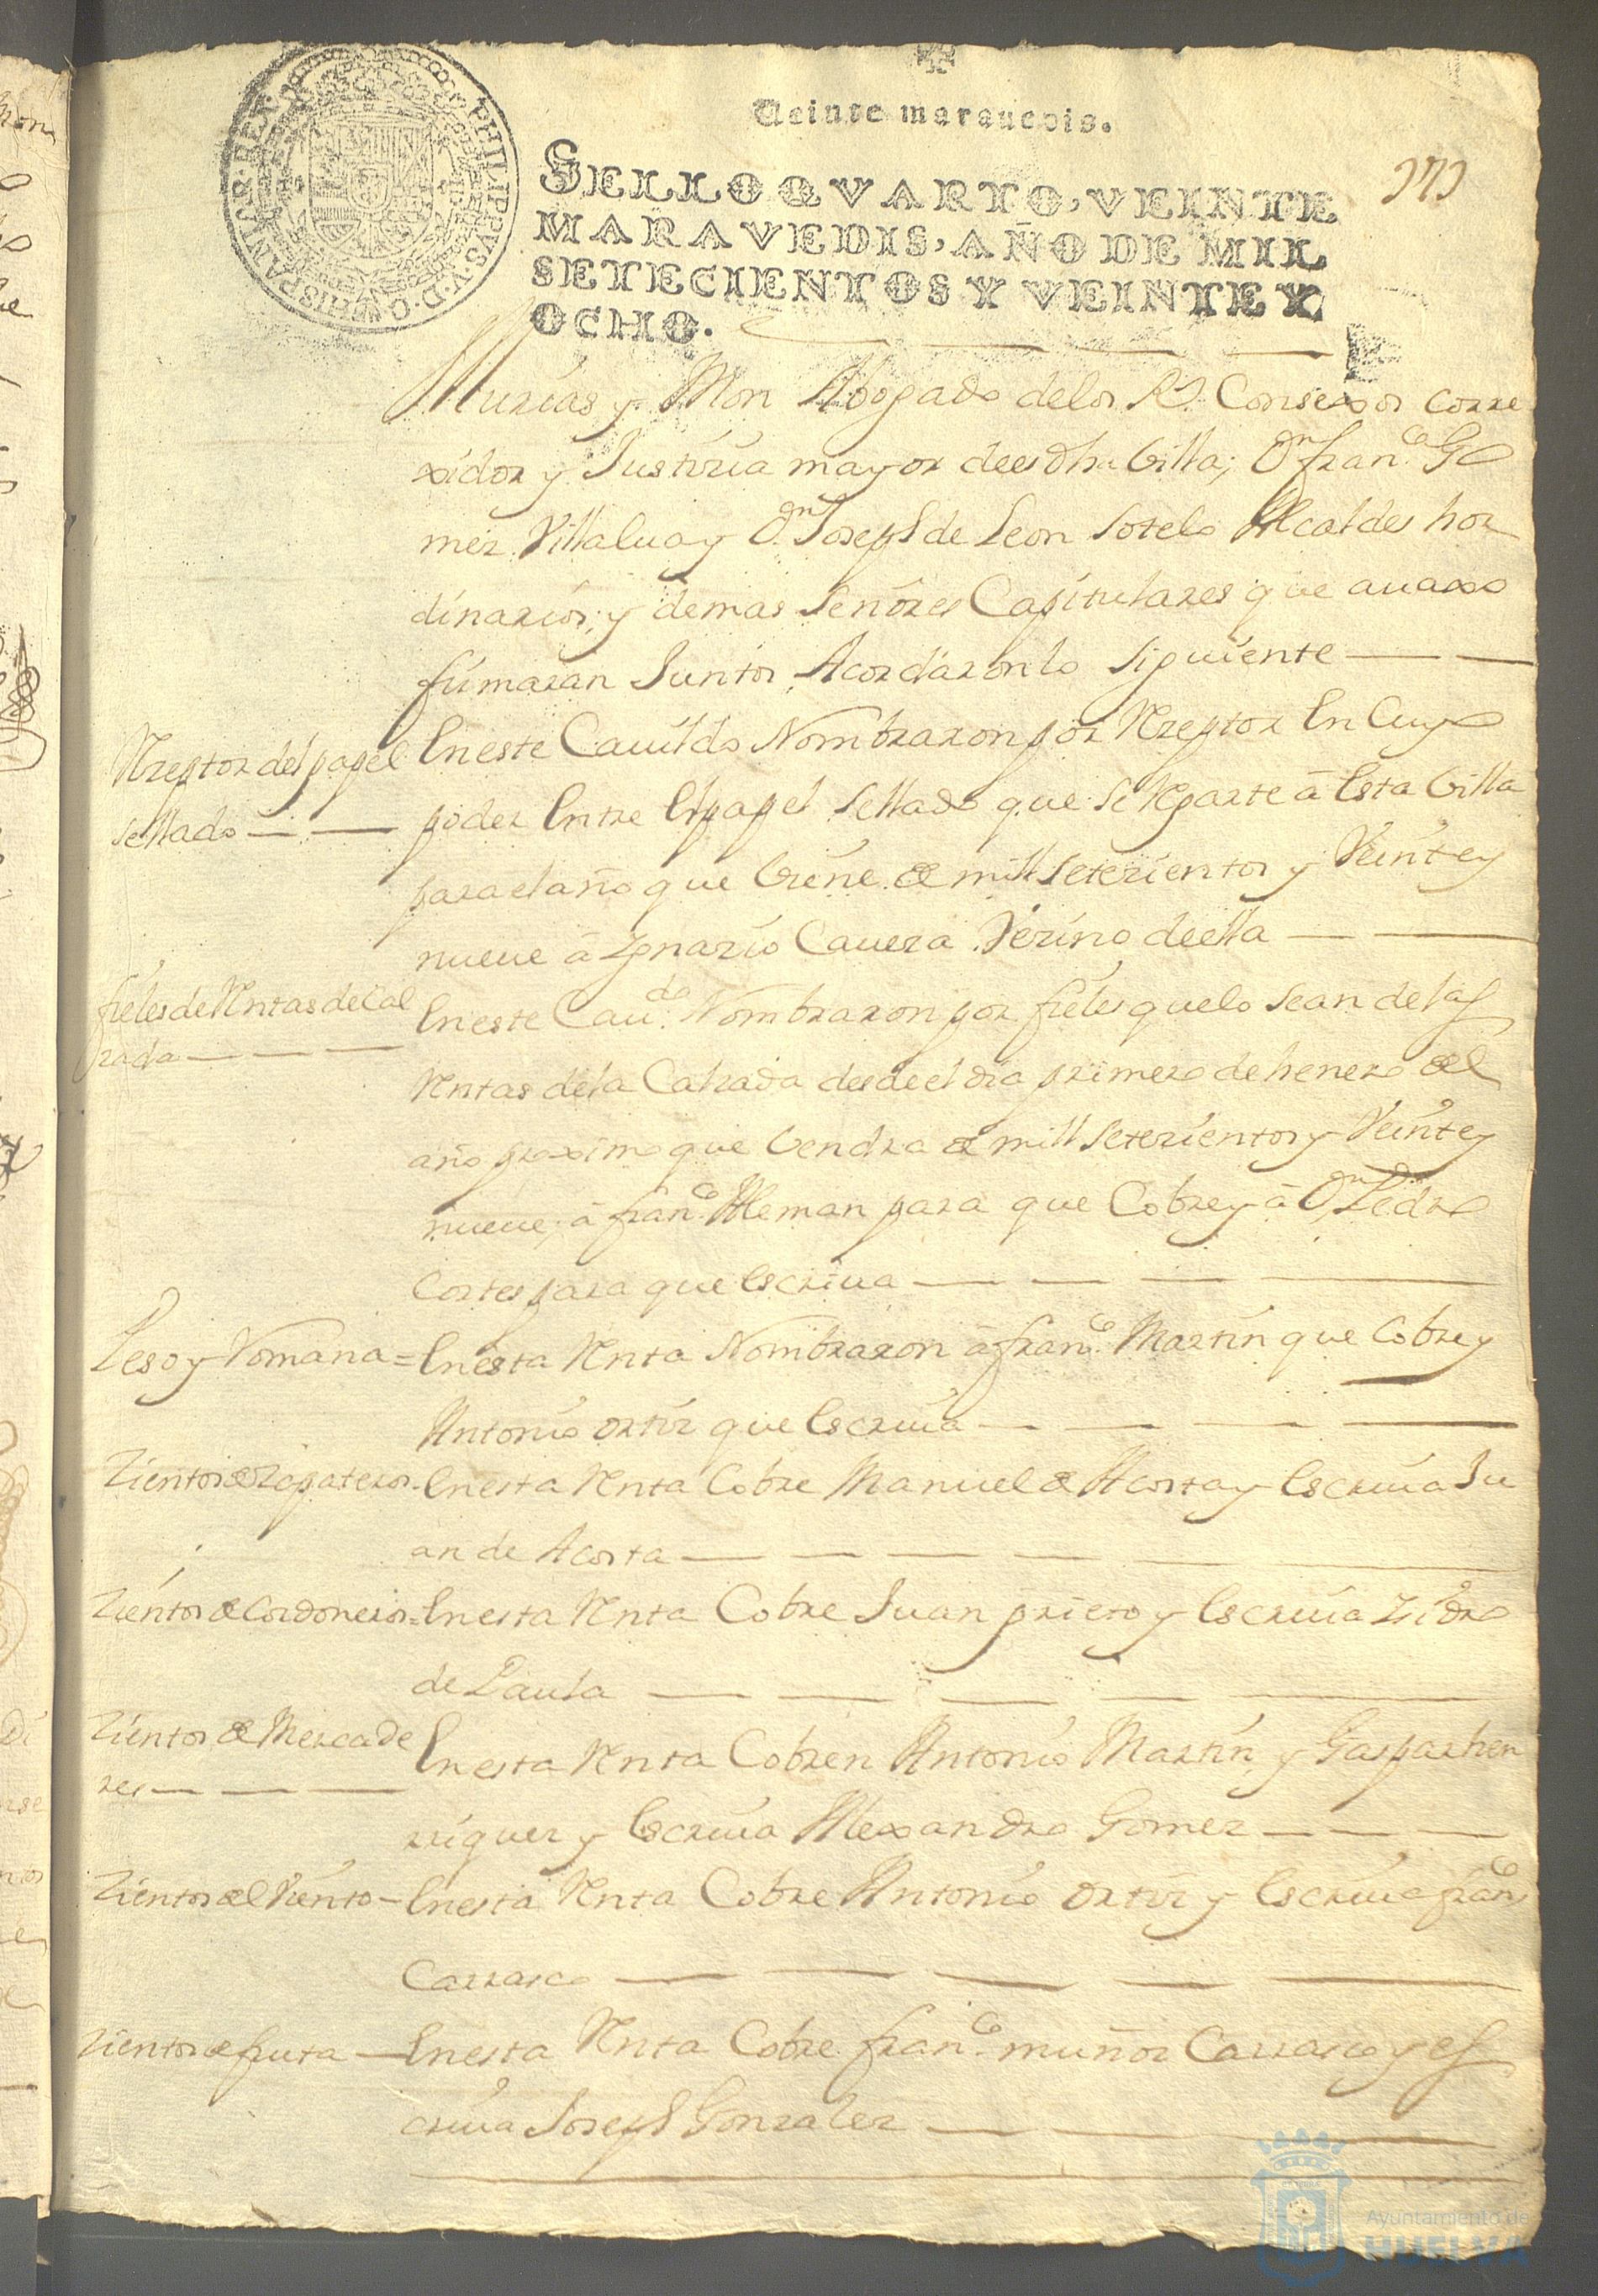 Veinte marauedis.
SELLO QVARTO, VEINTE
MARAVEDIS, AÑO DE MIL
SETECIENTOS Y VEINTE Y
OCHO.
PHILIPPVS V D G HISPANIAR REX
Murias y Mon Abogado delos Rs. Consexos corre
xidor y Justizia mayor deesdha Villa; Dn. franco. Go
mez Villalua y Dn. Joseph de Leon Sotelo Alcaldes hor
dinarios; y demas Señores Capitulares que auaxo
firmaran Juntos Acordaron lo siguiente
Rzeptor del papel
sellado
En este Cauildo Nombraron por Rzeptor En Cuyo
poder Entre El papel Sellado que se Reparte â Esta Villa
para el año que Viene de mill Setezientos y Veinte y
nueue â Ygnazio Cauera Vezino deella
fieles de Rentas de Cal
zada
En este Caudo. Nombraron por fieles quelo Sean de las
Rentas dela Calzada desde el dia primero de henero del
año proximo que Vendra de mill Setezientos y Veinte y
nueue, â franco. Aleman para que Cobre y â Dn. Pedro
Cortes para que Escriua
Peso y Romana =
En esta Renta Nombraron â franco. Martin que Cobre y
Antonio Ortiz que Escriua
Zientos de Zapateros
En esta Renta Cobre Manuel de Acosta y Escriua Ju
an de Acosta
Zientos de Cordoneros =
En esta Renta Cobre Juan prieto y Escriua Ysidro
de Paula
Zientos de Mercade
res
En esta Renta Cobren Antonio Martin y Gaspar hen
rriquez y Escriua Alexandro Gomez
Zientos del Viento
En esta Renta Cobre Antonio Ortiz y Escriua franco
Carrasco
Zientos de fruta
En esta Renta Cobre franco. muñoz Carrasco y es
criua Joseph Gonzalez
Ayuntamiento de
HUELVA